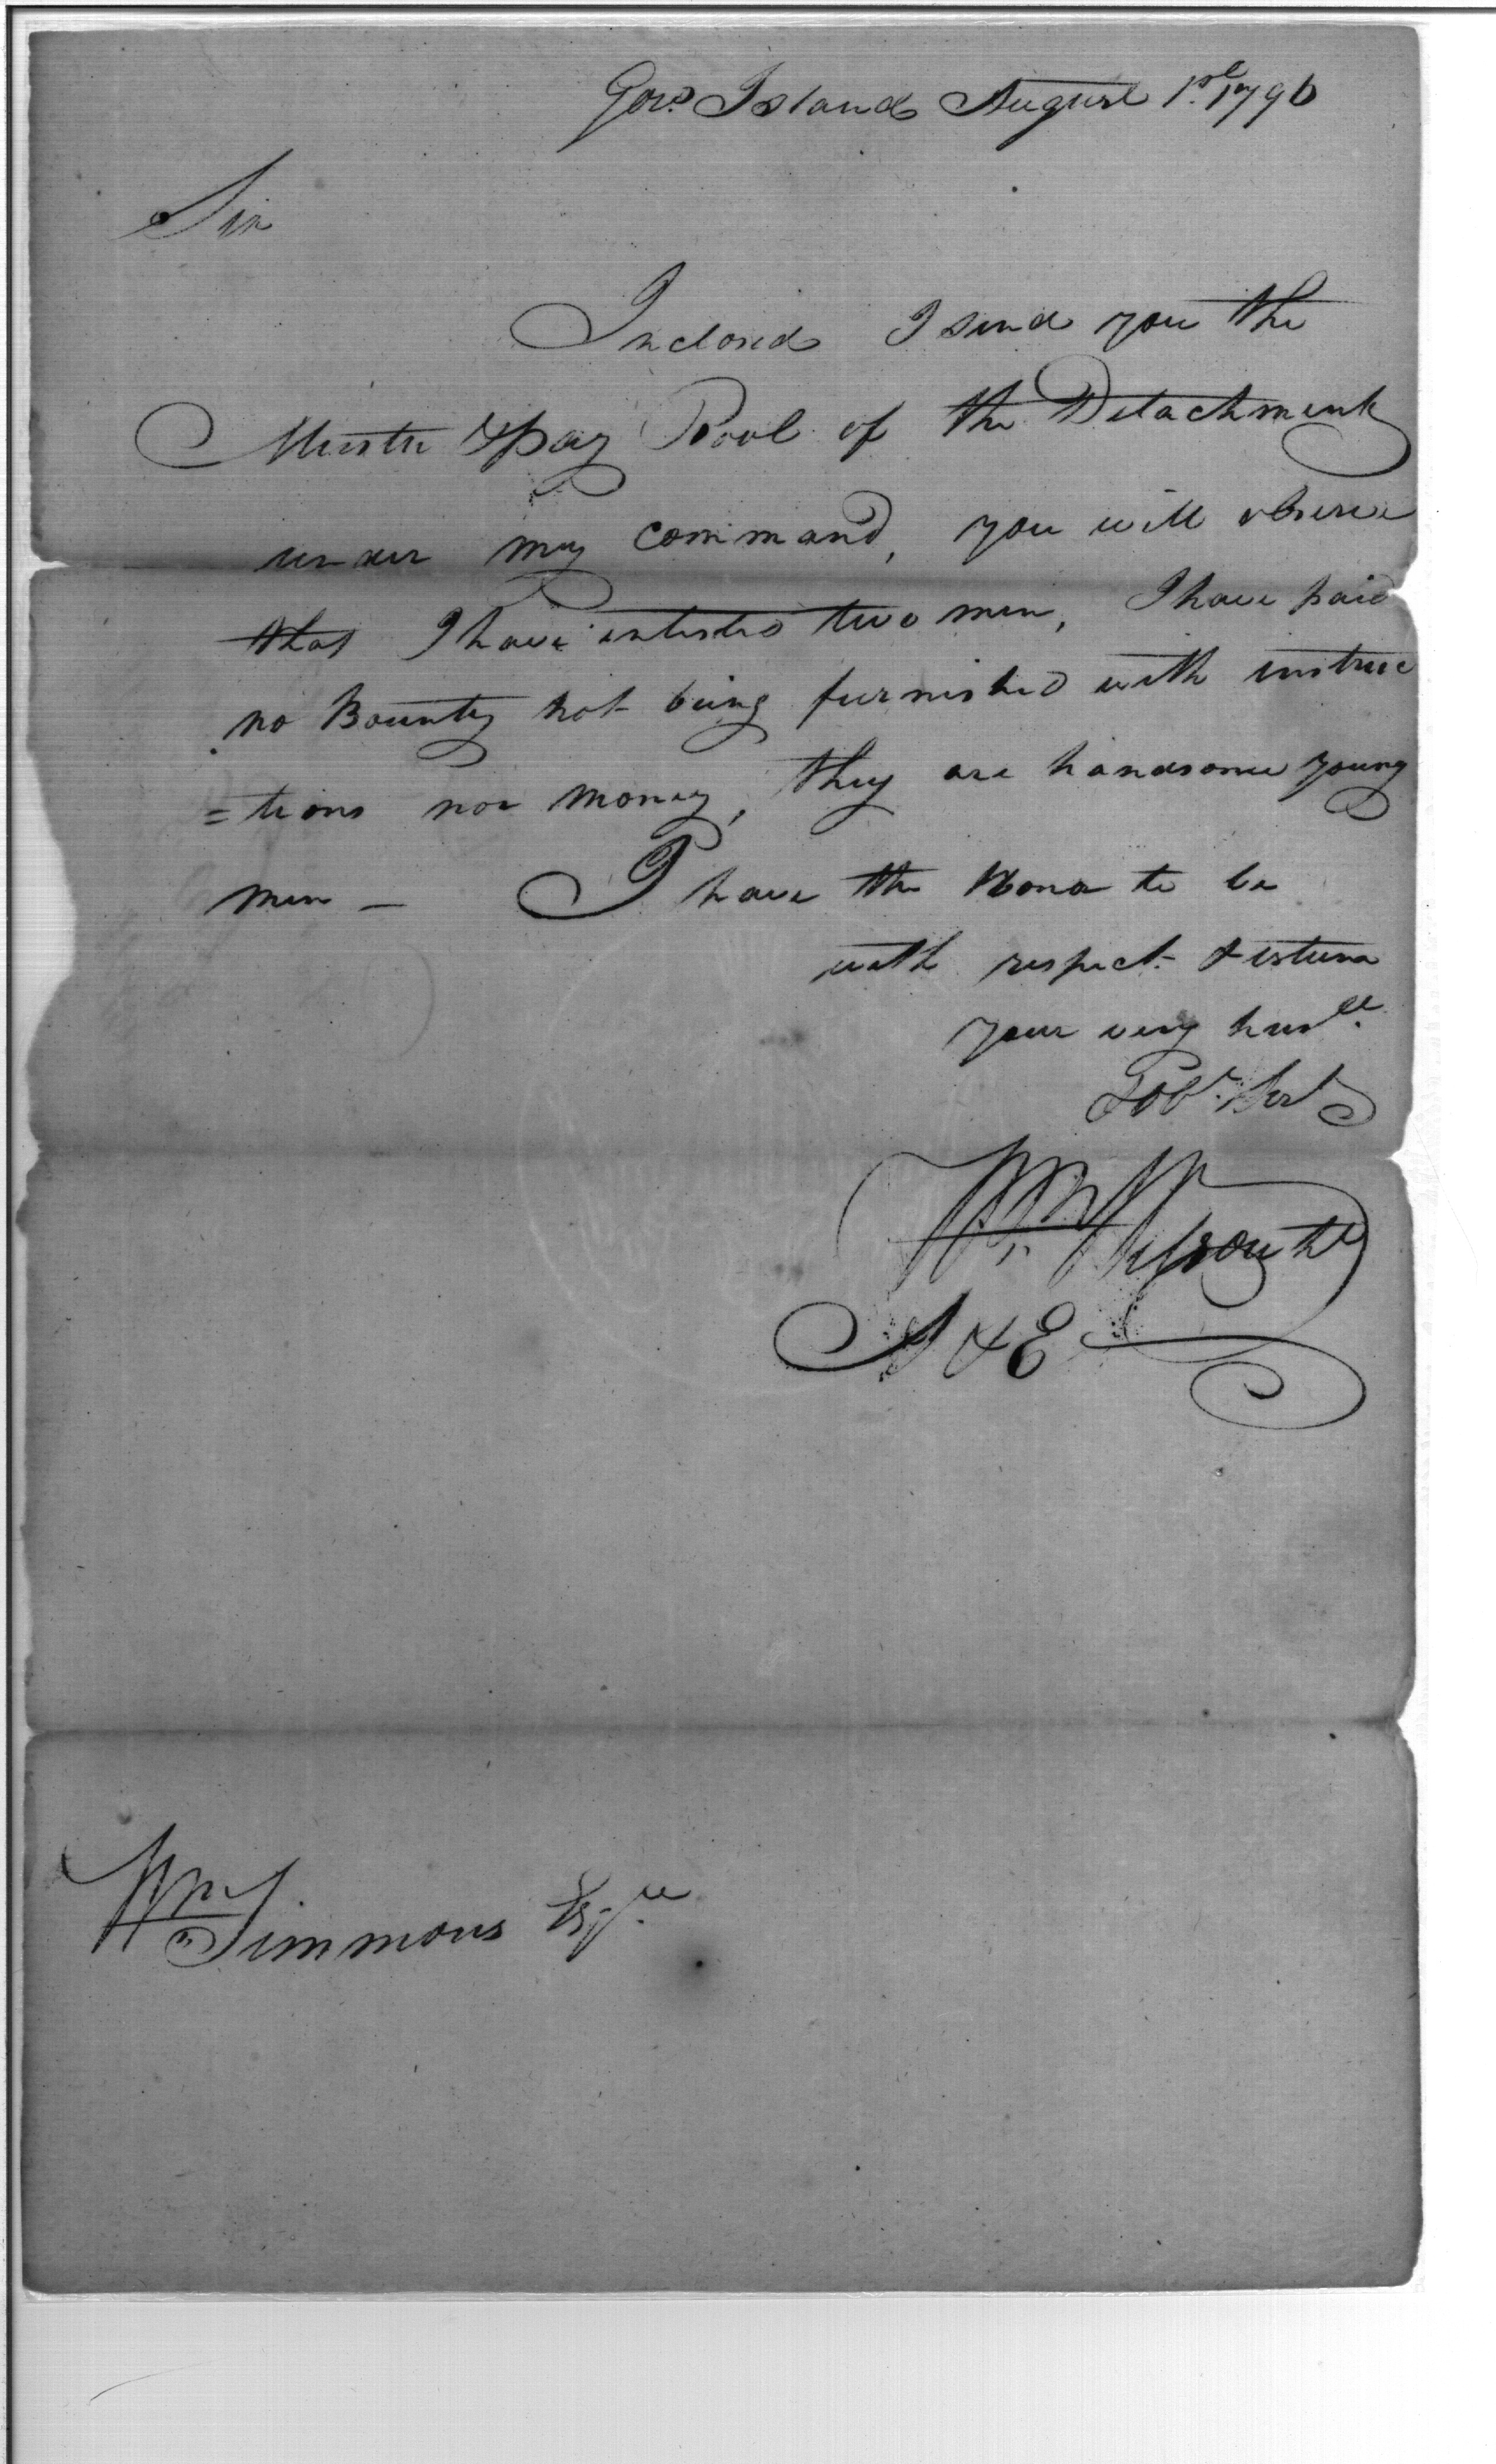 Gov.s Island August 1.st 1796
Sir
Inclosed I send you the
Muster & pay Rool of the Detachment
under my command, you will observe
that I have enlisted two men, I have paid
no Bounty not being furnished with instruc
=tions nor money, they are handsome young
men — I have the Honor to be
with respect & esteem
your very hum.le
& Ob.t Ser.t
Wm. Wilson
A & E
Wm. Simmons Esq.re